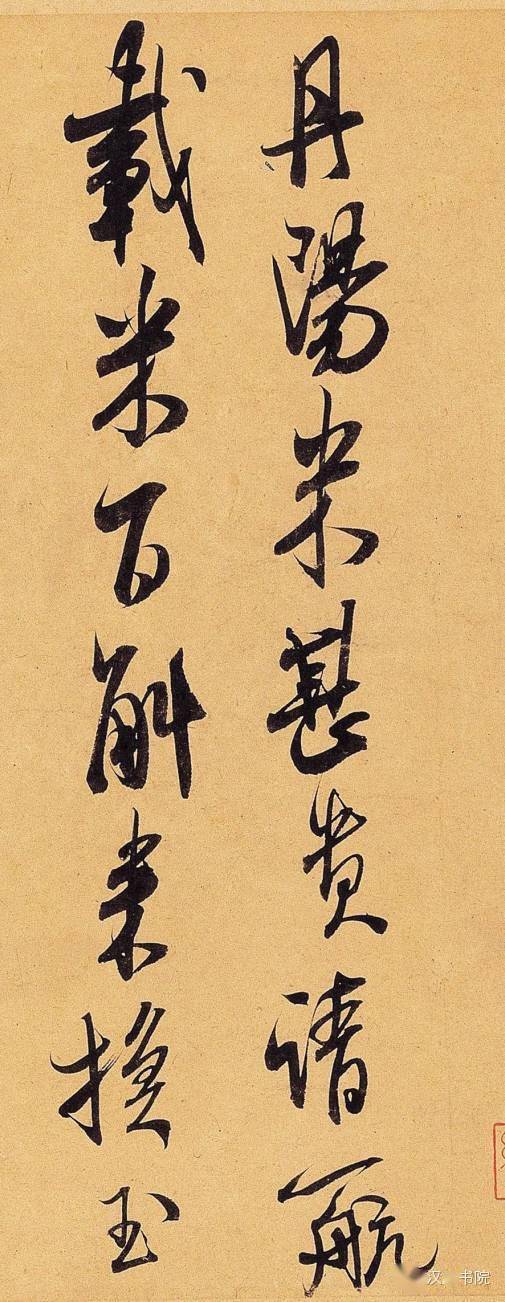 丹陽米甚貴請一航
載米百斛来換玉
汉。书院